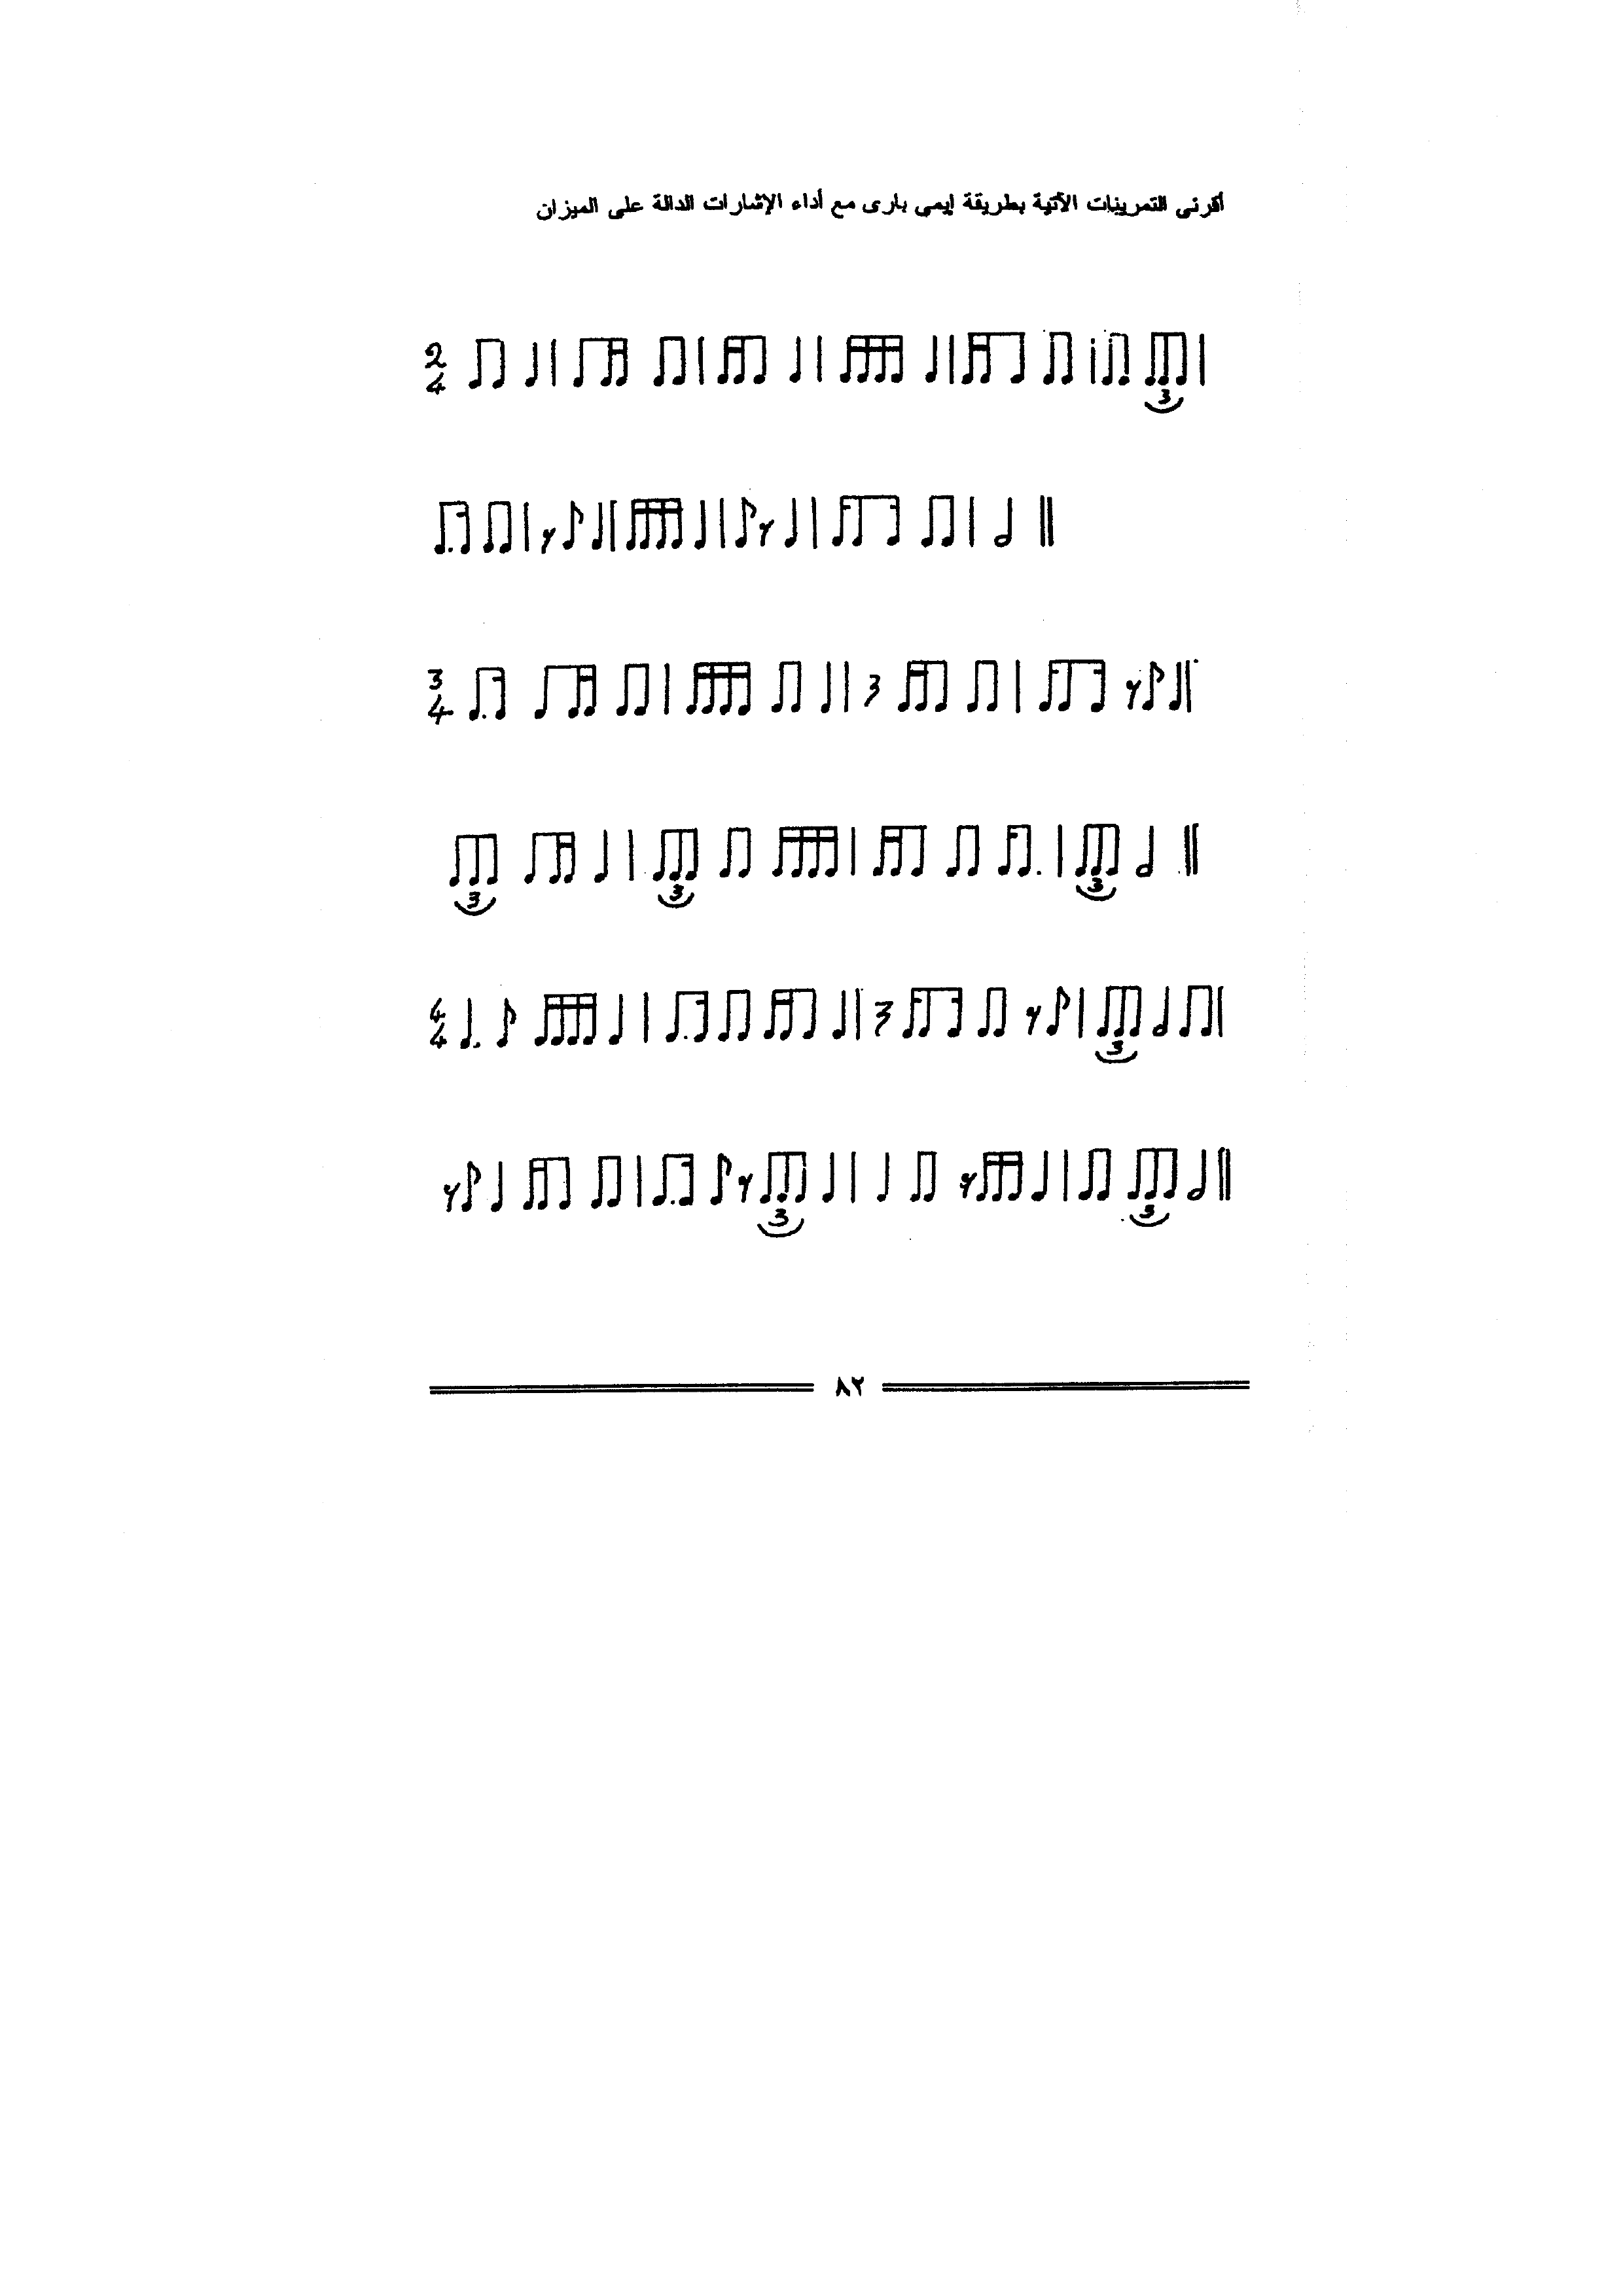 أقرئى التمرينات الآتية بطريقة إيمى بارى مع أداء الإشارات الدالة على الميزان
2
4
3
3
4
3 3 3
4
4
3
3 3
٨٢